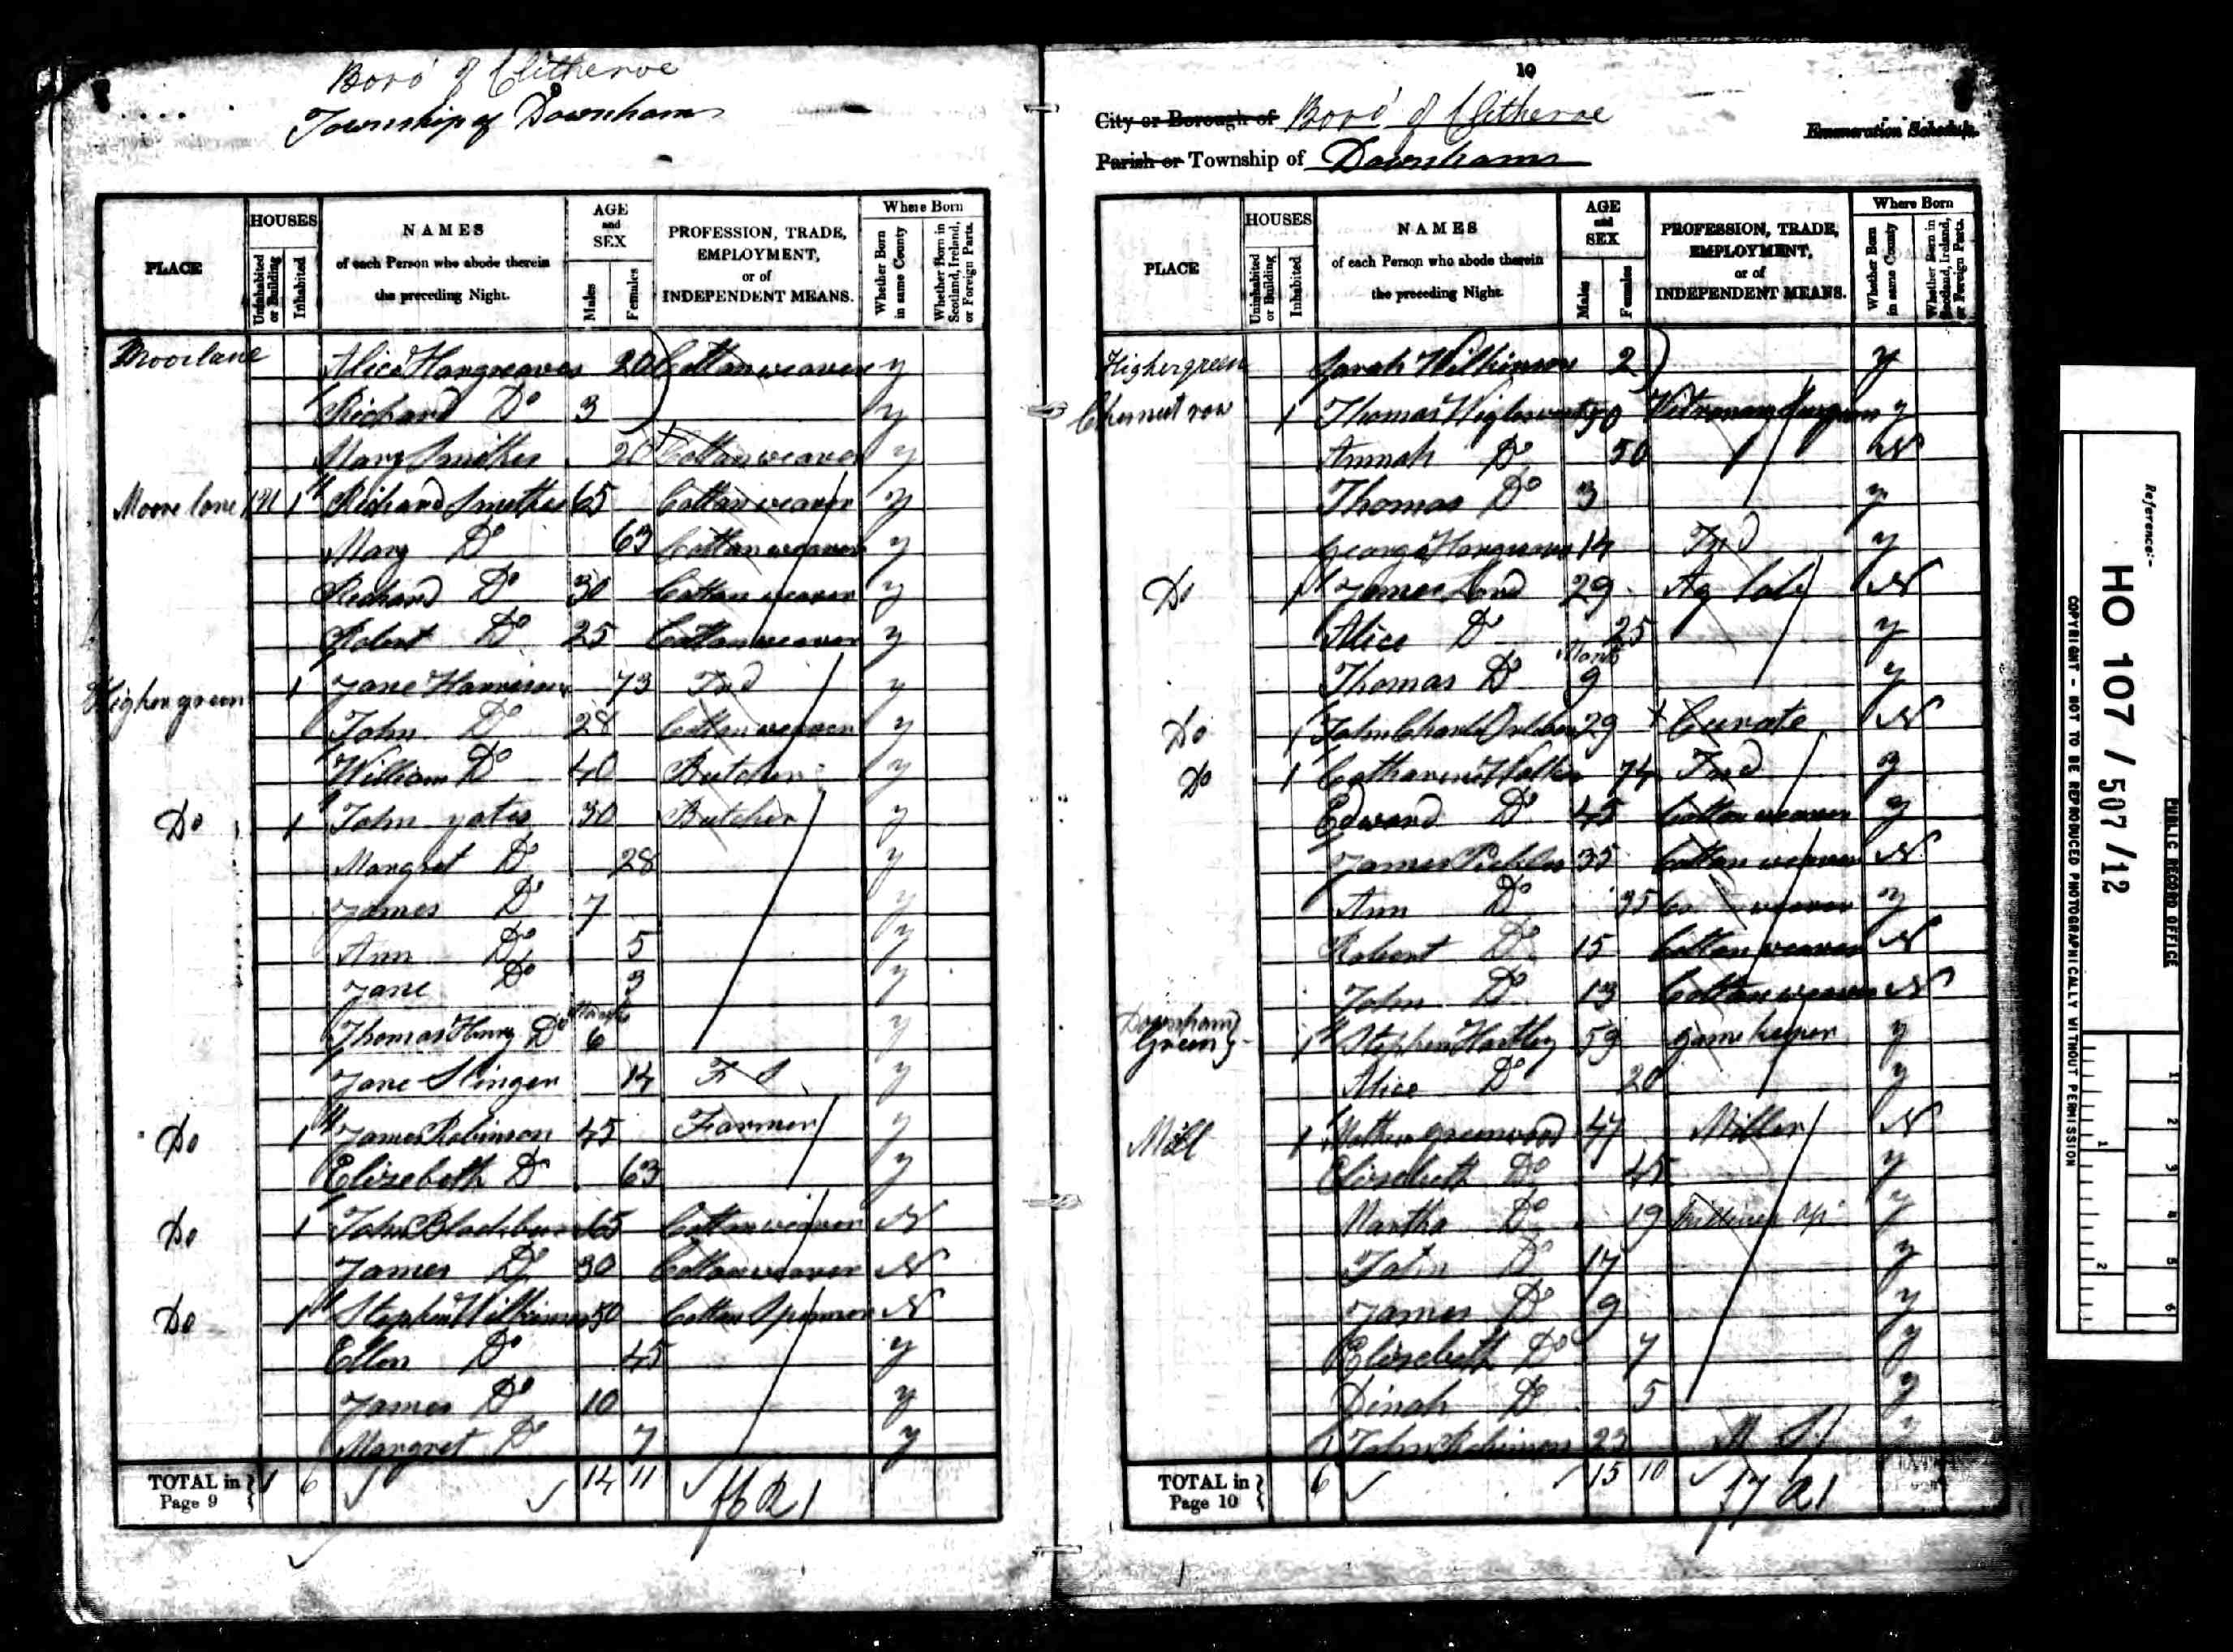 Boro' of Clitheroe
9
Township of Downham
PLACE HOUSES NAMES of each Person who abode therein the preceding Night. AGE and SEX PROFESSION, TRADE, EMPLOYMENT, or of INDEPENDENT MEANS. Where Born
Uninhabited or Building Inhabited Males Females Whether Born in same County Whether Born in Scotland, Ireland, or Foreign Parts.
Moorlane Alice Hargreaves 20 Cotton weaver y
Richard Do 3 y
Mary Smithes 20 Cotton weaver y
Moore lane 1 Richard Smithes 65 Cotton weaver y
Mary Do 63 Cotton weaver y
Richard Do 30 Cotton weaver y
Robert Do 25 Cotton weaver y
Higher green 1 Jane Harrison 73 Ind y
John Do 28 Cotton weaver y
William Do 40 Butcher y
Do 1 John yates 30 Butcher y
Margret Do 28 y
James Do 7 y
Ann Do 5 y
Jane Do 3 y
Thomas Henry Do Months 6 y
Jane Slinger 14 F S y
Do 1 James Robinson 45 Farmer y
Elizebeth Do 63 y
Do 1 John Blackburn 65 Cotton weaver N
James Do 30 Cotton weaver N
Do 1 Stephen Wilkinson 50 Cotton Spinner N
Ellen Do 45 y
James Do 10 y
Margret Do 7 y
TOTAL in Page 9 1 6 14 11
10
City or Borough of Boro' of Clitheroe
Enumeration Schedule.
Parish or Township of Downham
PLACE HOUSES NAMES of each Person who abode therein the preceding Night. AGE and SEX PROFESSION, TRADE, EMPLOYMENT, or of INDEPENDENT MEANS. Where Born
Uninhabited or Building Inhabited Males Females Whether Born in same County Whether Born in Scotland, Ireland, or Foreign Parts.
Highergreen Sarah Wilkinson 2 y
Chesnut row 1 Thomas 50 y
Annah Do 50 N
Thomas Do 3 y
George Hargreaves 14 Ind y
Do 1 James Lord 29 Ag lab N
Alice Do 25 y
Thomas Do Months 9 y
Do 1 John Charles 29 Curate N
Do 1 Catharine Walker 74 Ind y
Edward Do 45 Cotton weaver y
James Peebles 35 Cotton weaver N
Ann Do 35 Co weaver y
Robert Do 15 Cotton weaver N
John Do 13 Cotton weaver N
Downham Green 1 Stephen Hartley 53 game keeper y
Alice Do 20 y
Mill 1 greenwood 47 Miller N
Elizabeth Do 45 y
Martha Do 19 y
John Do 17 y
James Do 9 y
Elizebeth Do 7 y
Dinah Do 5 y
John Robinson 23 M S y
TOTAL in Page 10 6 15 10
Reference:-
HO 107 / 507/12
PUBLIC RECORD OFFICE
COPYRIGHT - NOT TO BE REPRODUCED PHOTOGRAPHICALLY WITHOUT PERMISSION
1 2 3 4 5 6
1 2